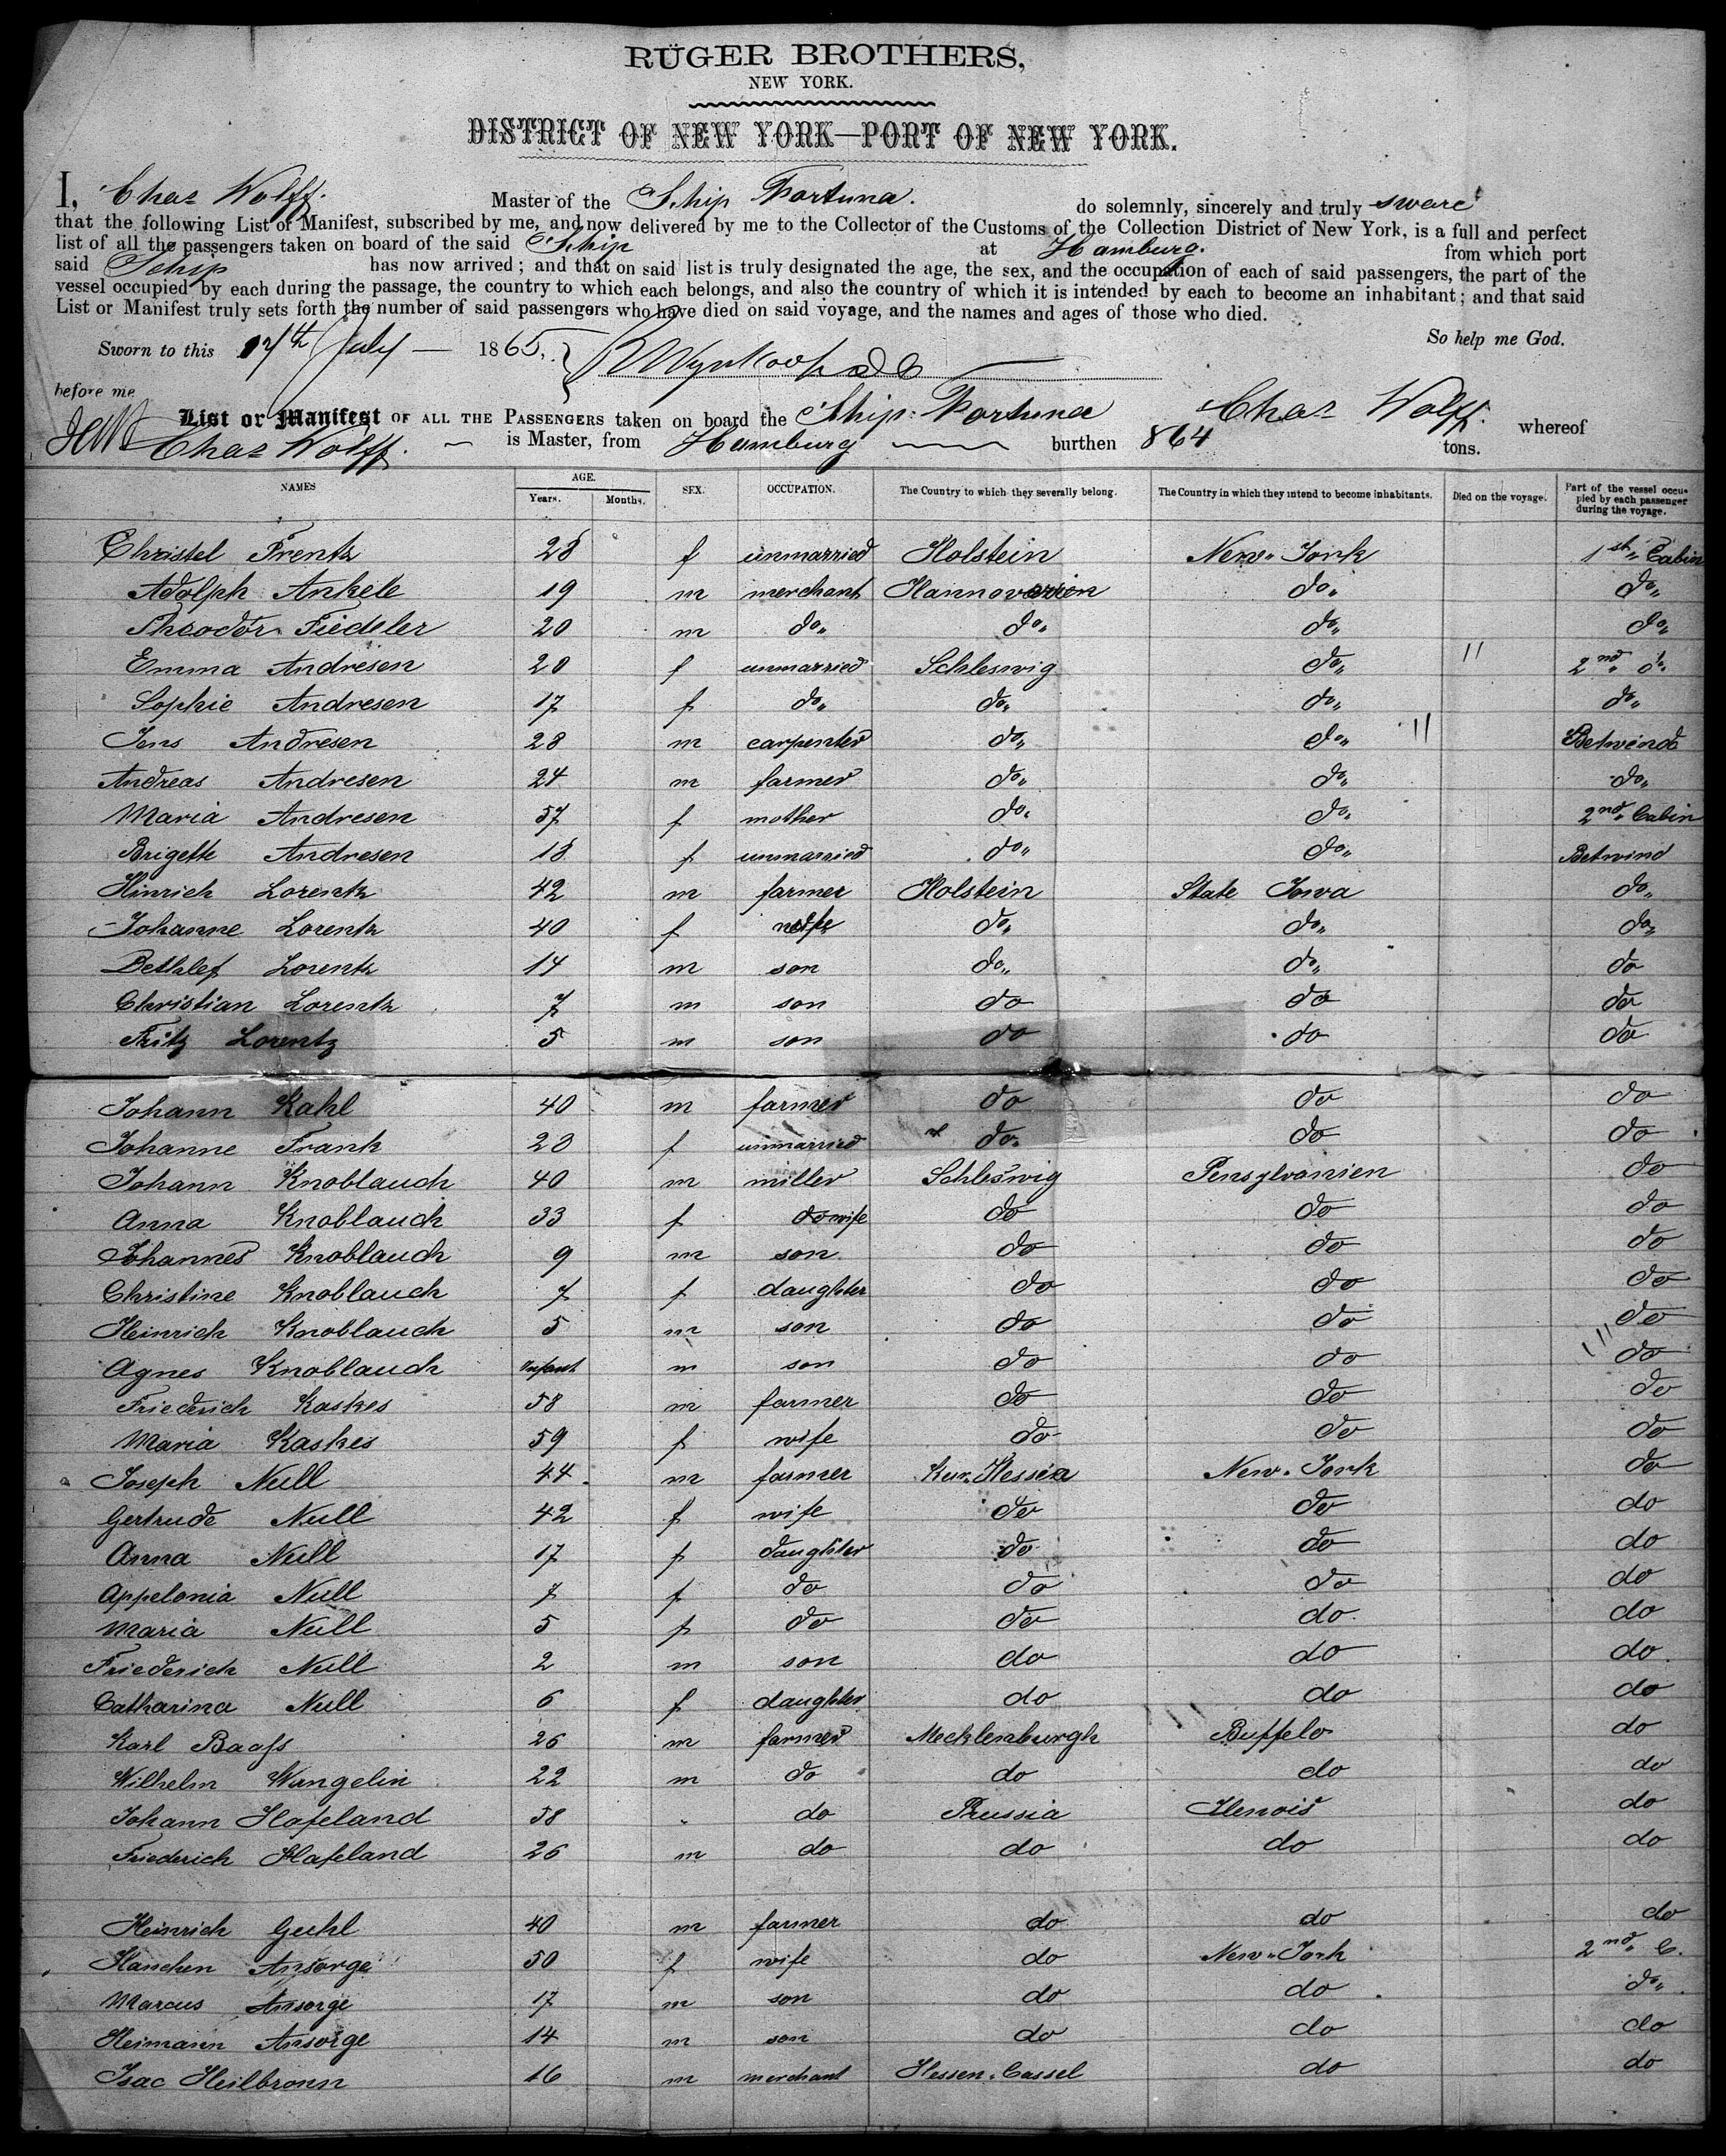 RÜGER BROTHERS,
NEW YORK.
DISTRICT OF NEW YORK—PORT OF NEW YORK.
I, Chas Wolff. Master of the Ship Fortuna. do solemnly, sincerely and truly sware
that the following List or Manifest, subscribed by me, and now delivered by me to the Collector of the Customs of the Collection District of New York, is a full and perfect
list of all the passengers taken on board of the said Ship at Hamburg. from which port
said Ship has now arrived; and that on said list is truly designated the age, the sex, and the occupation of each of said passengers, the part of the
vessel occupied by each during the passage, the country to which each belongs, and also the country of which it is intended by each to become an inhabitant; and that said
List or Manifest truly sets forth the number of said passengers who have died on said voyage, and the names and ages of those who died.
So help me God.
Sworn to this 17th July 1865,
before me Chas Wolff.
List or Manifest OF ALL THE PASSENGERS taken on board the Ship: Fortuna whereof
Chas Wolff. is Master, from Hamburg burthen 864 tons.
NAMES AGE. Years. Months. SEX. OCCUPATION. The Country to which they severally belong. The Country in which they intend to become inhabitants. Died on the voyage. Part of the vessel occupied by each passenger during the voyage.
Christel Frentz 28 f unmarried Holstein New-York 1st Cabin
Adolph Ankele 19 m merchant Hannoverien do do
Theodor Fiedeler 20 m do do do do
Emma Andresen 20 f unmarried Schleswig do 2nd do
Sophie Andresen 17 f do do do do
Jens Andresen 28 m carpenter do do Betwindb
Andreas Andresen 24 m farmer do do do
Maria Andresen 57 f mother do do 2nd Cabin
Brigette Andresen 18 f unmarried do do Betwind
Hinrich Lorentz 42 m farmer Holstein State Iowa do
Johanne Lorentz 40 f wife do do do
Dethlef Lorentz 14 m son do do do
Christian Lorentz 7 m son do do do
Fritz Lorentz 5 m son do do do
Johann Kahl 40 m farmer do do do
Johanne Frank 20 f unmarried do do do
Johann Knoblauch 40 m miller Schleswig Pensylvanien do
Anna Knoblauch 33 f do wife do do do
Johannes Knoblauch 9 m son do do do
Christine Knoblauch 7 f daughter do do do
Heinrich Knoblauch 5 m son do do do
Agnes Knoblauch Infant m son do do do
Friederich Kaskes 58 m farmer do do do
Maria Kaskes 59 f wife do do do
Joseph Null 44 m farmer Kur-Hessia New-York do
Gertrude Null 42 f wife do do do
Anna Null 17 f daughter do do do
Appelonia Null 7 f do do do do
Maria Null 5 f do do do do
Friederich Null 2 m son do do do
Catharina Null 6 f daughter do do do
Karl Baass 26 m farmer Mecklenburgh Buffelo do
Wilhelm Wangelin 22 m do do do do
Johann Hafeland 58 " do Prussia Ilenois do
Friederich Hafeland 26 m do do do do
Heinrich Guhl 40 m farmer do do do
Hanchen Ansorge 50 f wife do New-York 2nd C.
Marcus Ansorge 17 m son do do do
Heimann Ansorge 14 m son do do do
Isac Heilbronn 16 m merchant Hessen-Cassel do do